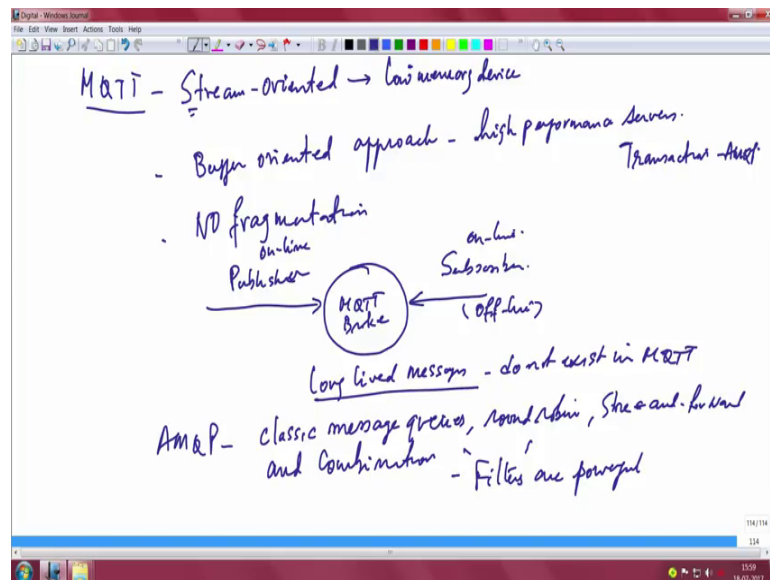 Digital - Windows Journal
File Edit View Insert Actions Tools Help
MQTT - Stream-oriented → Low memory device
- Buffer oriented approach - high performance servers.
Transaction - AMQP
. NO fragmentation
on-line
Publisher
on-line.
Subscriber.
MQTT
Broker
(Off-line)
Long lived messages - do not exist in MQTT
AMQP - classic message queues, round robin, Store and-forward
and Combination - "Filters" are powerful
114/114
114
15:59
18-02-2017